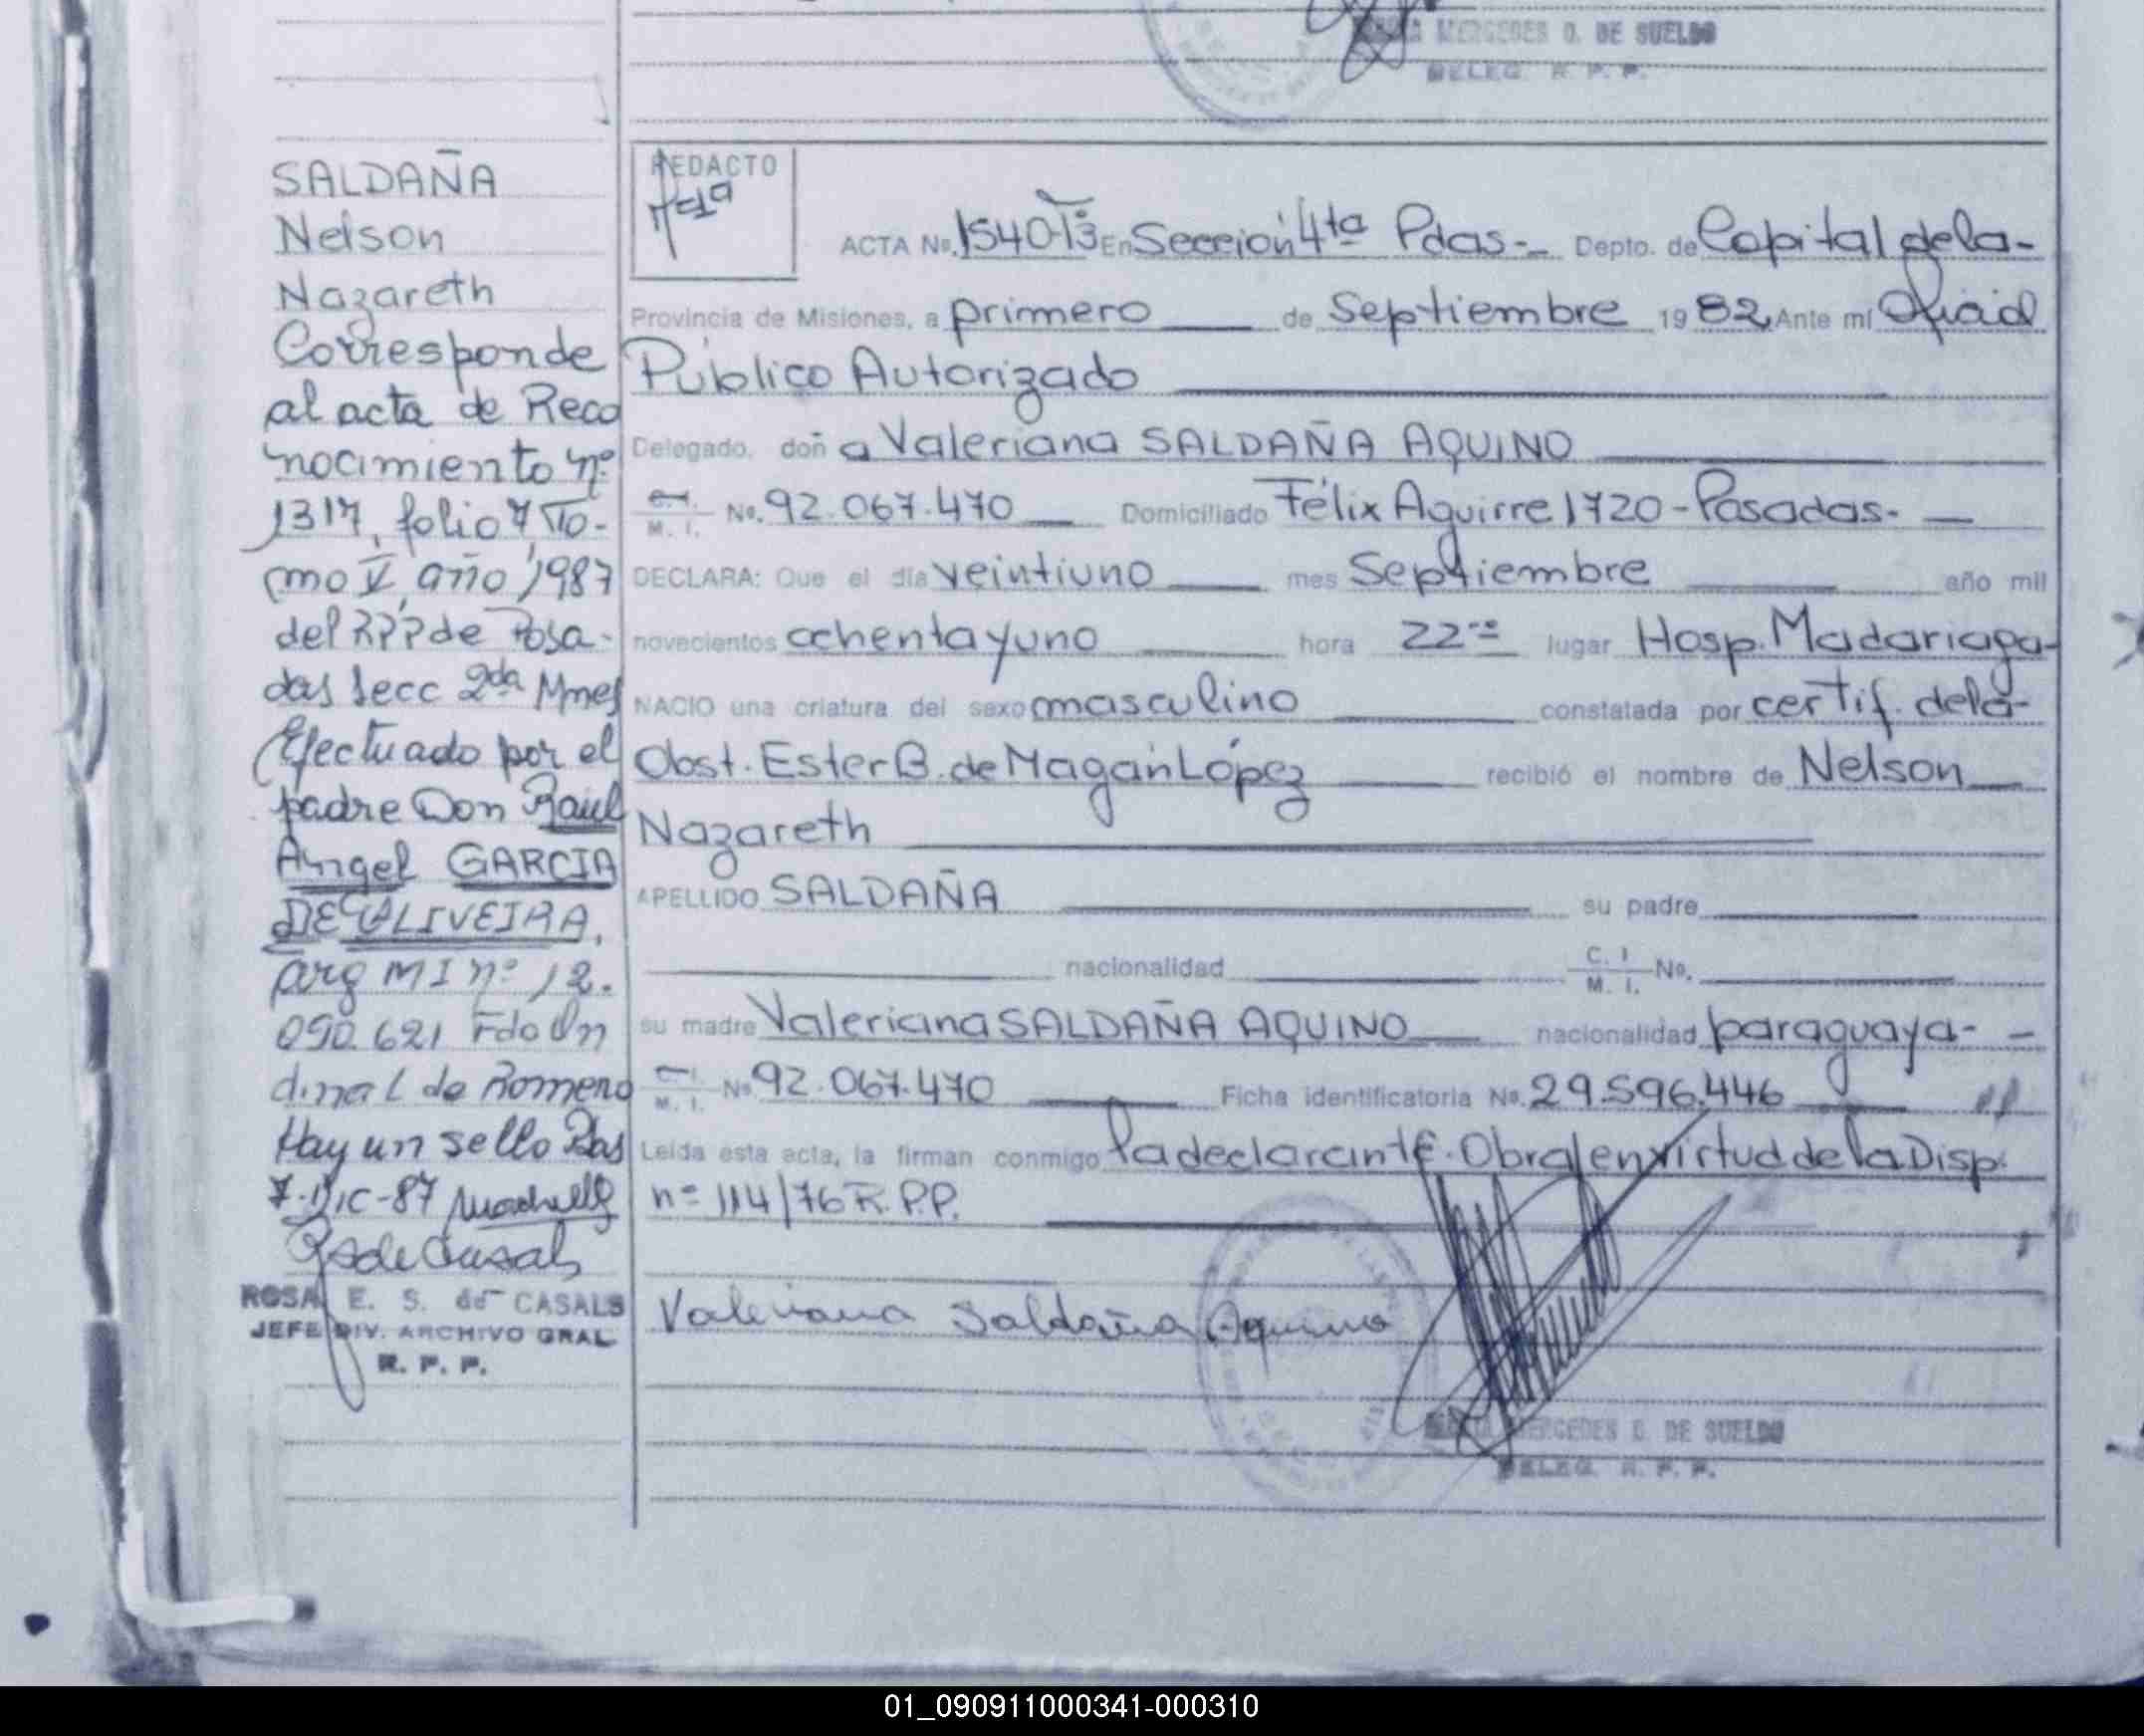 MERCEDES O. DE SUELDO
DELEG. R. P. P.
SALDAÑA
Nelson
Nazareth
Corresponde
al acta de Reco
nocimiento nº
1317, folio 7 To-
mo V, año 1987
del RPP de Posa-
das Secc 2da Mnes
Efectuado por el
padre Don Raúl
Angel GARCIA
DE OLIVEIRA,
arg MI nº 12.
090.621 Fdo On
dina L de Romero
Hay un sello Pdas
7-DIC-87
RSdeCasals
ROSA E. S. de CASALS
JEFE DIV. ARCHIVO GRAL
R. P. P.
REDACTO
ACTA Nº. 1540-T3 En Sección 4ta Pdas-- Depto. de Capital de la-
Provincia de Misiones, a primero de Septiembre 1982 Ante mí Oficial
Público Autorizado
Delegado, doña Valeriana SALDAÑA AQUINO
C.I. M. I. Nº. 92.067.470 Domiciliado Félix Aguirre 1720 - Posadas-
DECLARA: Que el día veintiuno mes Septiembre año mil
novecientos ochenta y uno hora 22 lugar Hosp. Madariaga-
NACIO una criatura del sexo masculino constatada por certif. de la-
Obst. Ester B. de Magan López recibió el nombre de Nelson
Nazareth
APELLIDO SALDAÑA su padre
nacionalidad C. I M. I. Nº.
su madre Valeriana SALDAÑA AQUINO nacionalidad paraguaya- -
C.I. M. I. Nº 92.067.470 Ficha identificatoria Nº. 29.596.446
Leída esta acta, la firman conmigo la declarante. Obral en virtud de la Disp.
nº 114/76 R.P.P.
Valeriana Saldaña Aquino
MERCEDES O. DE SUELDO
DELEG. R. P. P.
01_090911000341-000310